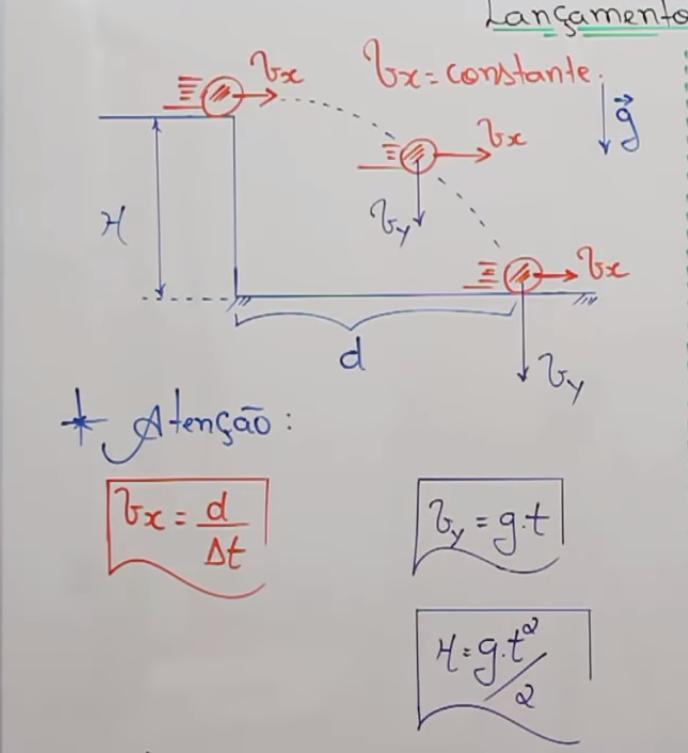 Lançamento
Vx Vx = constante.
g
Vx
H
Vy
Vx
d
Vy
* Atenção:
Vx = d/Δt
Vy = g.t
H = g.t²/2